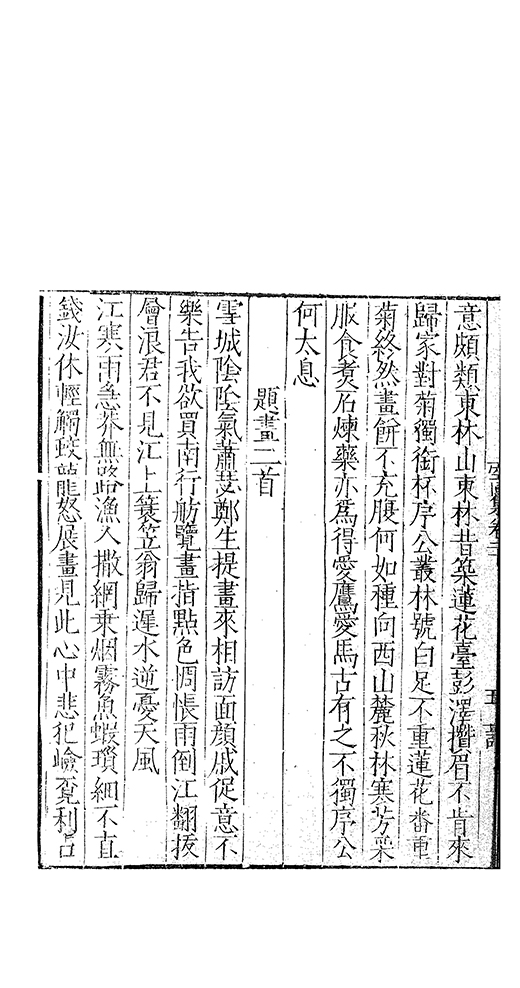 意頗類東林山東林昔築蓮花臺彭澤攢眉不肯來
歸家對菊獨銜杯序公叢林號白足不重蓮花番重
菊終然畫餠不充腹何如種向西山麓秋林寒芳采
服食煮石煉藥亦爲得愛鷹愛馬古有之不獨序公
何太息
題畫二首
雪城陰陰氣蕭瑟鄭生提畫來相訪面顔戚促意不
樂告我欲買南行舫覽畫指點色惆悵雨倒江翻拔
檜浪君不見江上簑笠翁歸遲水逆憂天風
江寒雨急莽無路漁人撒網乘烟霧魚蝦瑣細不直
錢汝休輕觸蛟龍怒展畫見此心中悲犯嶮覔利古